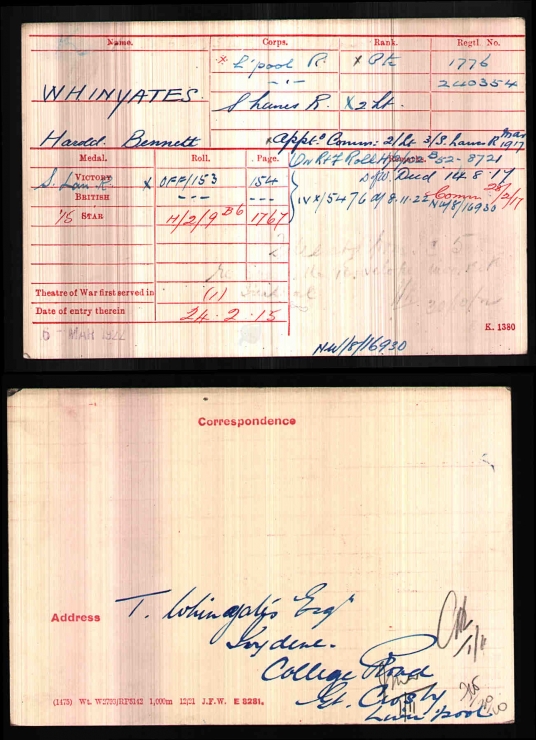 Name.
Corps.
Rank.
Regtl. No.
WHINYATES
Harold Bennett
× L'pool R. × Pte 1776
— " — 240354
S Lancs R. × 2 Lt.
× Apptd Comm: 2/Lt 3/S. Lancs R Mar 1917
Medal.
Roll.
Page.
S. Lan R.
Victory × OFF/153 154
British - - - - - -
'15 Star H/2/9 B6 1767
52- 8721
D of W Died 14.8.17
Comm: 28/2/17
IV x/5476 d/ 8.11.22 NW/8/16930
Theatre of War first served in (1)
Date of entry therein 24.2.15
K. 1380
6 - MAR 1922
NW/8/16930
Correspondence
Address
T. Whinyates Esqr
Ivydene.
College Road
Gt. Crosby
Liverpool
(1473) Wt. W2703/RP5142 1,000m 12/21 J.F.W. E 5281.